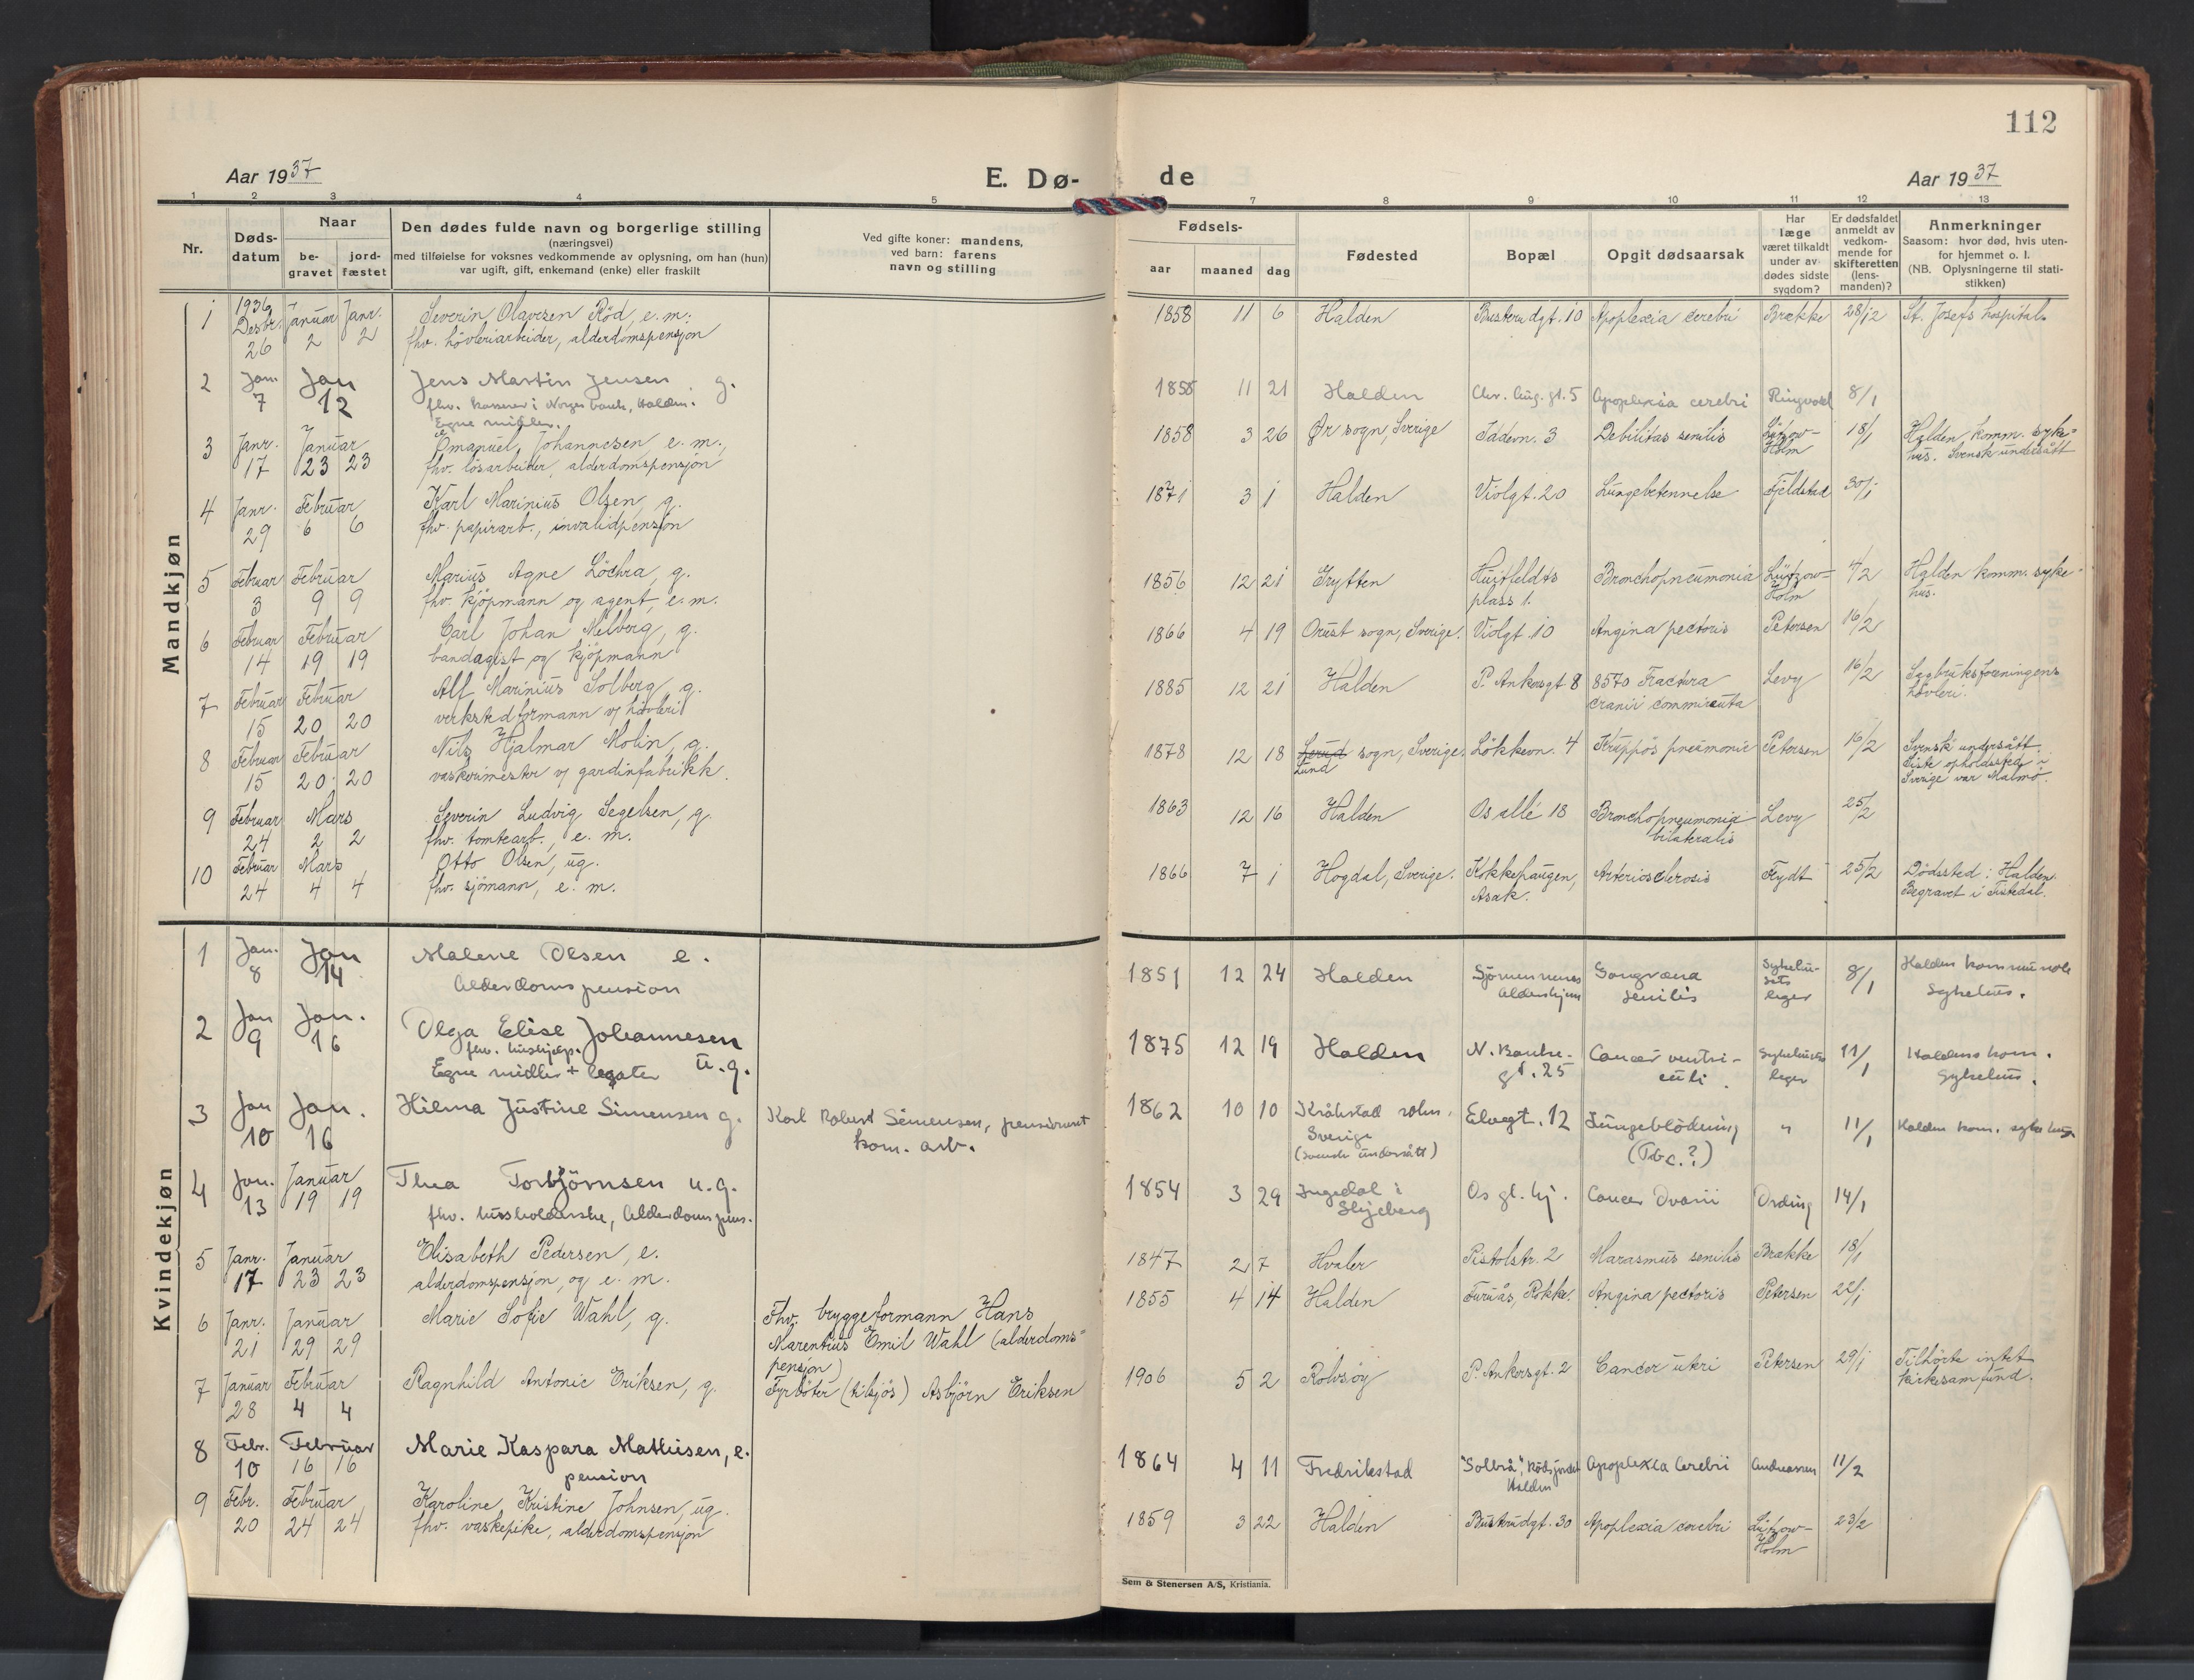 112
Aar 1937
E. Dø-
de
Aar 1937
1 2 3 4 5 7 8 9 10 11 12 13
Nr.
Døds-
datum
Naar
be-
gravet
jord-
fæstet
Den dødes fulde navn og borgerlige stilling
(næringsvei)
med tilføielse for voksnes vedkommende av oplysning, om han (hun)
var ugift, gift, enkemand (enke) eller fraskilt
Ved gifte koner: mandens,
ved barn: farens
navn og stilling
Fødsels-
aar maaned dag
Fødested
Bopæl
Opgit dødsaarsak
Har
læge
været tilkaldt
under av
dødes sidste
sygdom?
Er dødsfaldet
anmeldt av
vedkom-
mende for
skifteretten
(lens-
manden)?
Anmerkninger
Saasom: hvor død, hvis uten-
for hjemmet o. l.
(NB. Oplysningerne til stati-
stikken)
Mandkjøn
1 1936 Desbr. 26 Januar 2 Janr. 2
Severin Olavesen Röd, e. m.
fhv. hövleriarbeider, alderdomspensjon
1858 11 6 Halden Busterudgt. 10 Apoplexia cerebri Brække 28/12 St. Josefs hospital.
2 Jan. 7 Jan 12
Jens Martin Jensen, g.
fhv. kasserer i Norges bank, Halden.
Egne midler.
1858 11 21 Halden Chr. Aug. gt. 5 Apoplexia cerebri Ringvold 8/1
3 Janr. 17 Januar 23 23
Emanuel Johannesen, e. m.,
fhv. lösarbeider, alderdomspensjon
1858 3 26 Ör sogn, Sverige Iddevn. 3 Debilitas senilis Lützow-
Holm 18/1 Halden komm. syke-
hus. Svensk undersått
4 Janr. 29 Februar 6 6
Karl Marinius Olsen, g.
fhv. papirarb., invalidpensjon
1871 3 1 Halden Violgt. 20 Lungebetennelse Fjeldstad 30/1
5 Februar 3 Februar 9 9
Marius Agne Löchra, g.
fhv. kjöpmann og agent, e. m.
1856 12 21 Grytten Huitfeldts
plass 1. Bronchopneumonia Lützow-
Holm 4/2 Halden komm. syke-
hus.
6 Februar 14 Februar 19 19
Carl Johan Melberg, g.
bandagist og kjöpmann
1866 4 19 Orust sogn, Sverige. Violgt. 10 Angina pectoris Petersen 16/2
7 Februar 15 Februar 20 20
Alf Marinius Solberg, g.
verkstedformann v/ hövleri
1885 12 21 Halden P. Ankersgt 8 8570 Fractura
cranii comminuta Levy 16/2 Sagbruksforeningens
hövleri.
8 Februar 15 Februar 20 20
Nils Hjalmar Molin, g.
vaskerimester v/ gardinfabrikk.
1878 12 18 sogn, Sverige.
Lund Lökkevn. 4 Kruppös pneumonie Petersen 16/2 Svensk undersått.
Siste opholdssted i
Sverige var Malmö.
9 Februar 24 Mars 2 2
Severin Ludvig Segelsen, g.
fhv. tomtearb., e. m.
1863 12 16 Halden Os allé 18 Bronchopneumonia
bilateralis Levy 25/2
10 Februar 24 Mars 4 4
Otto Olsen, ug.
fhv. sjömann, e. m.
1866 7 1 Hogdal, Sverige. Kokkehaugen,
Asak. Arteriosclerosis Frydt 25/2 Dödssted: Halden.
Begravet i Tistedal.
Kvindekjøn
1 Jan. 8 Jan 14
Malene Olsen e.
Alderdomspension
1851 12 24 Halden Sjömennenes
Aldershjem Gangræna
senilis Sykehu-
sets
leger 8/1 Halden kommunale
Sykehus.
2 Jan 9 Jan. 16
Olga Elise Johannesen
fhv. hushjelp. u.g.
Egne midler + legater
1875 12 19 Halden N. Banke-
gt. 25 Cancer ventri-
culi. Sykehusets
leger 11/1 Haldens kom.
Sykehus.
3 Jan 10 Jan. 16
Hilma Justine Simensen g.
Karl Robert Simensen, pensionert
kom. arb.
1862 10 10 Kråkstad sokn.
Sverige
(Svensk undersått) Elvegt. 12 Lungeblödning
(Tbc.?) " 11/1 Halden kom. sykehus
4 Jan. 13 Januar 19 19
Thea Torbjörnsen u.g.
fhv. husholderske, Alderdomspens.
1854 3 29 Ingedal i
Skjeberg Os gl. hj. Cancer Ovarii Ording 14/1
5 Janr. 17 Januar 23 23
Elisabeth Pedersen, e.
alderdomspensjon, og e. m.
1847 2 7 Hvaler Pistolstr. 2 Marasmus senilis Brække 18/1
6 Janr. 21 Januar 29 29
Marie Sofie Wahl, g.
Fhv. bryggeformann Hans
Marentius Emil Wahl (alderdoms-
pensjon)
1855 4 14 Halden Furuås, Rokke. Angina pectoris Petersen 22/1
7 Januar 28 Februar 4 4
Ragnhild Antonie Eriksen, g.
Fyrböter (tilsjös) Asbjörn Eriksen
1906 5 2 Rolvsöy P. Ankersgt. 2 Cancer uteri Petersen 29/1 Tilhörte intet
kirkesamfund.
8 Febr. 10 Februar 16 16
Marie Kaspara Mathisen, e.
pension
1864 4 11 Fredrikstad "Solbrå", Rödsfjordet
Halden Apoplexia Cerebri Andreassen 11/2
9 Febr. 20 Februar 24 24
Karoline Kristine Johnsen, ug.
fhv. vaskepike, alderdomspensjon
1859 3 22 Halden Busterudgt. 30 Apoplexia cerebri Lützow-
Holm 23/2
Sem & Stenersen A/S, Kristiania.